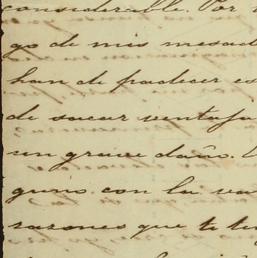 considerable. Por
go de mis mesad
han de padecer es
de sacar ventaja
un grave daño.
guno con la va
razones que te